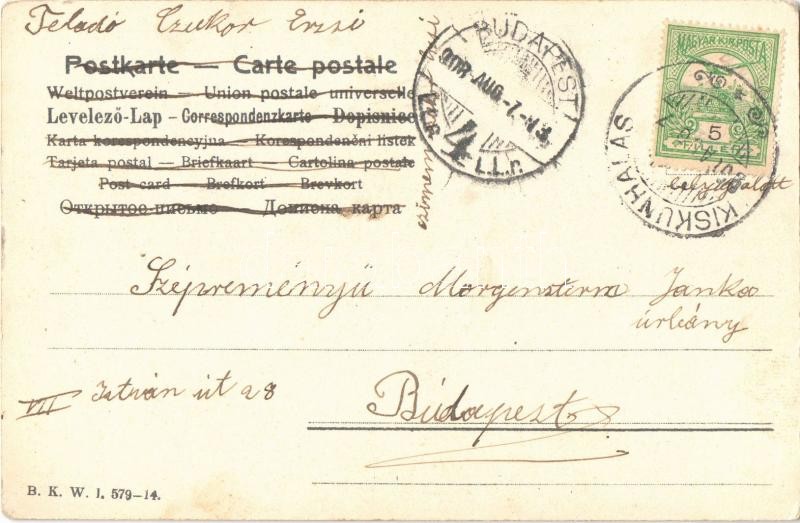 Feladó Czukor Erzsi
Postkarte — Carte postale
Weltpostverein — Union postale universelle
Levelező-Lap – Correspondenzkarte – Dopisnice
Karta korespondencyjna – Korespondenční lístek
Tarjeta postal — Briefkaart — Cartolina postale
Post card — Brefkort — Brevkort
Открытое письмо — Дописна карта
BUDAPEST
907 AUG. 7.
4
I.L.r.
MAGYAR KIR. POSTA
5
KISKUNHALAS
czimem
Szépreményű Morgenstern Janka
úrleány
VII István út 28
Budapest
B. K. W. I. 579–14.